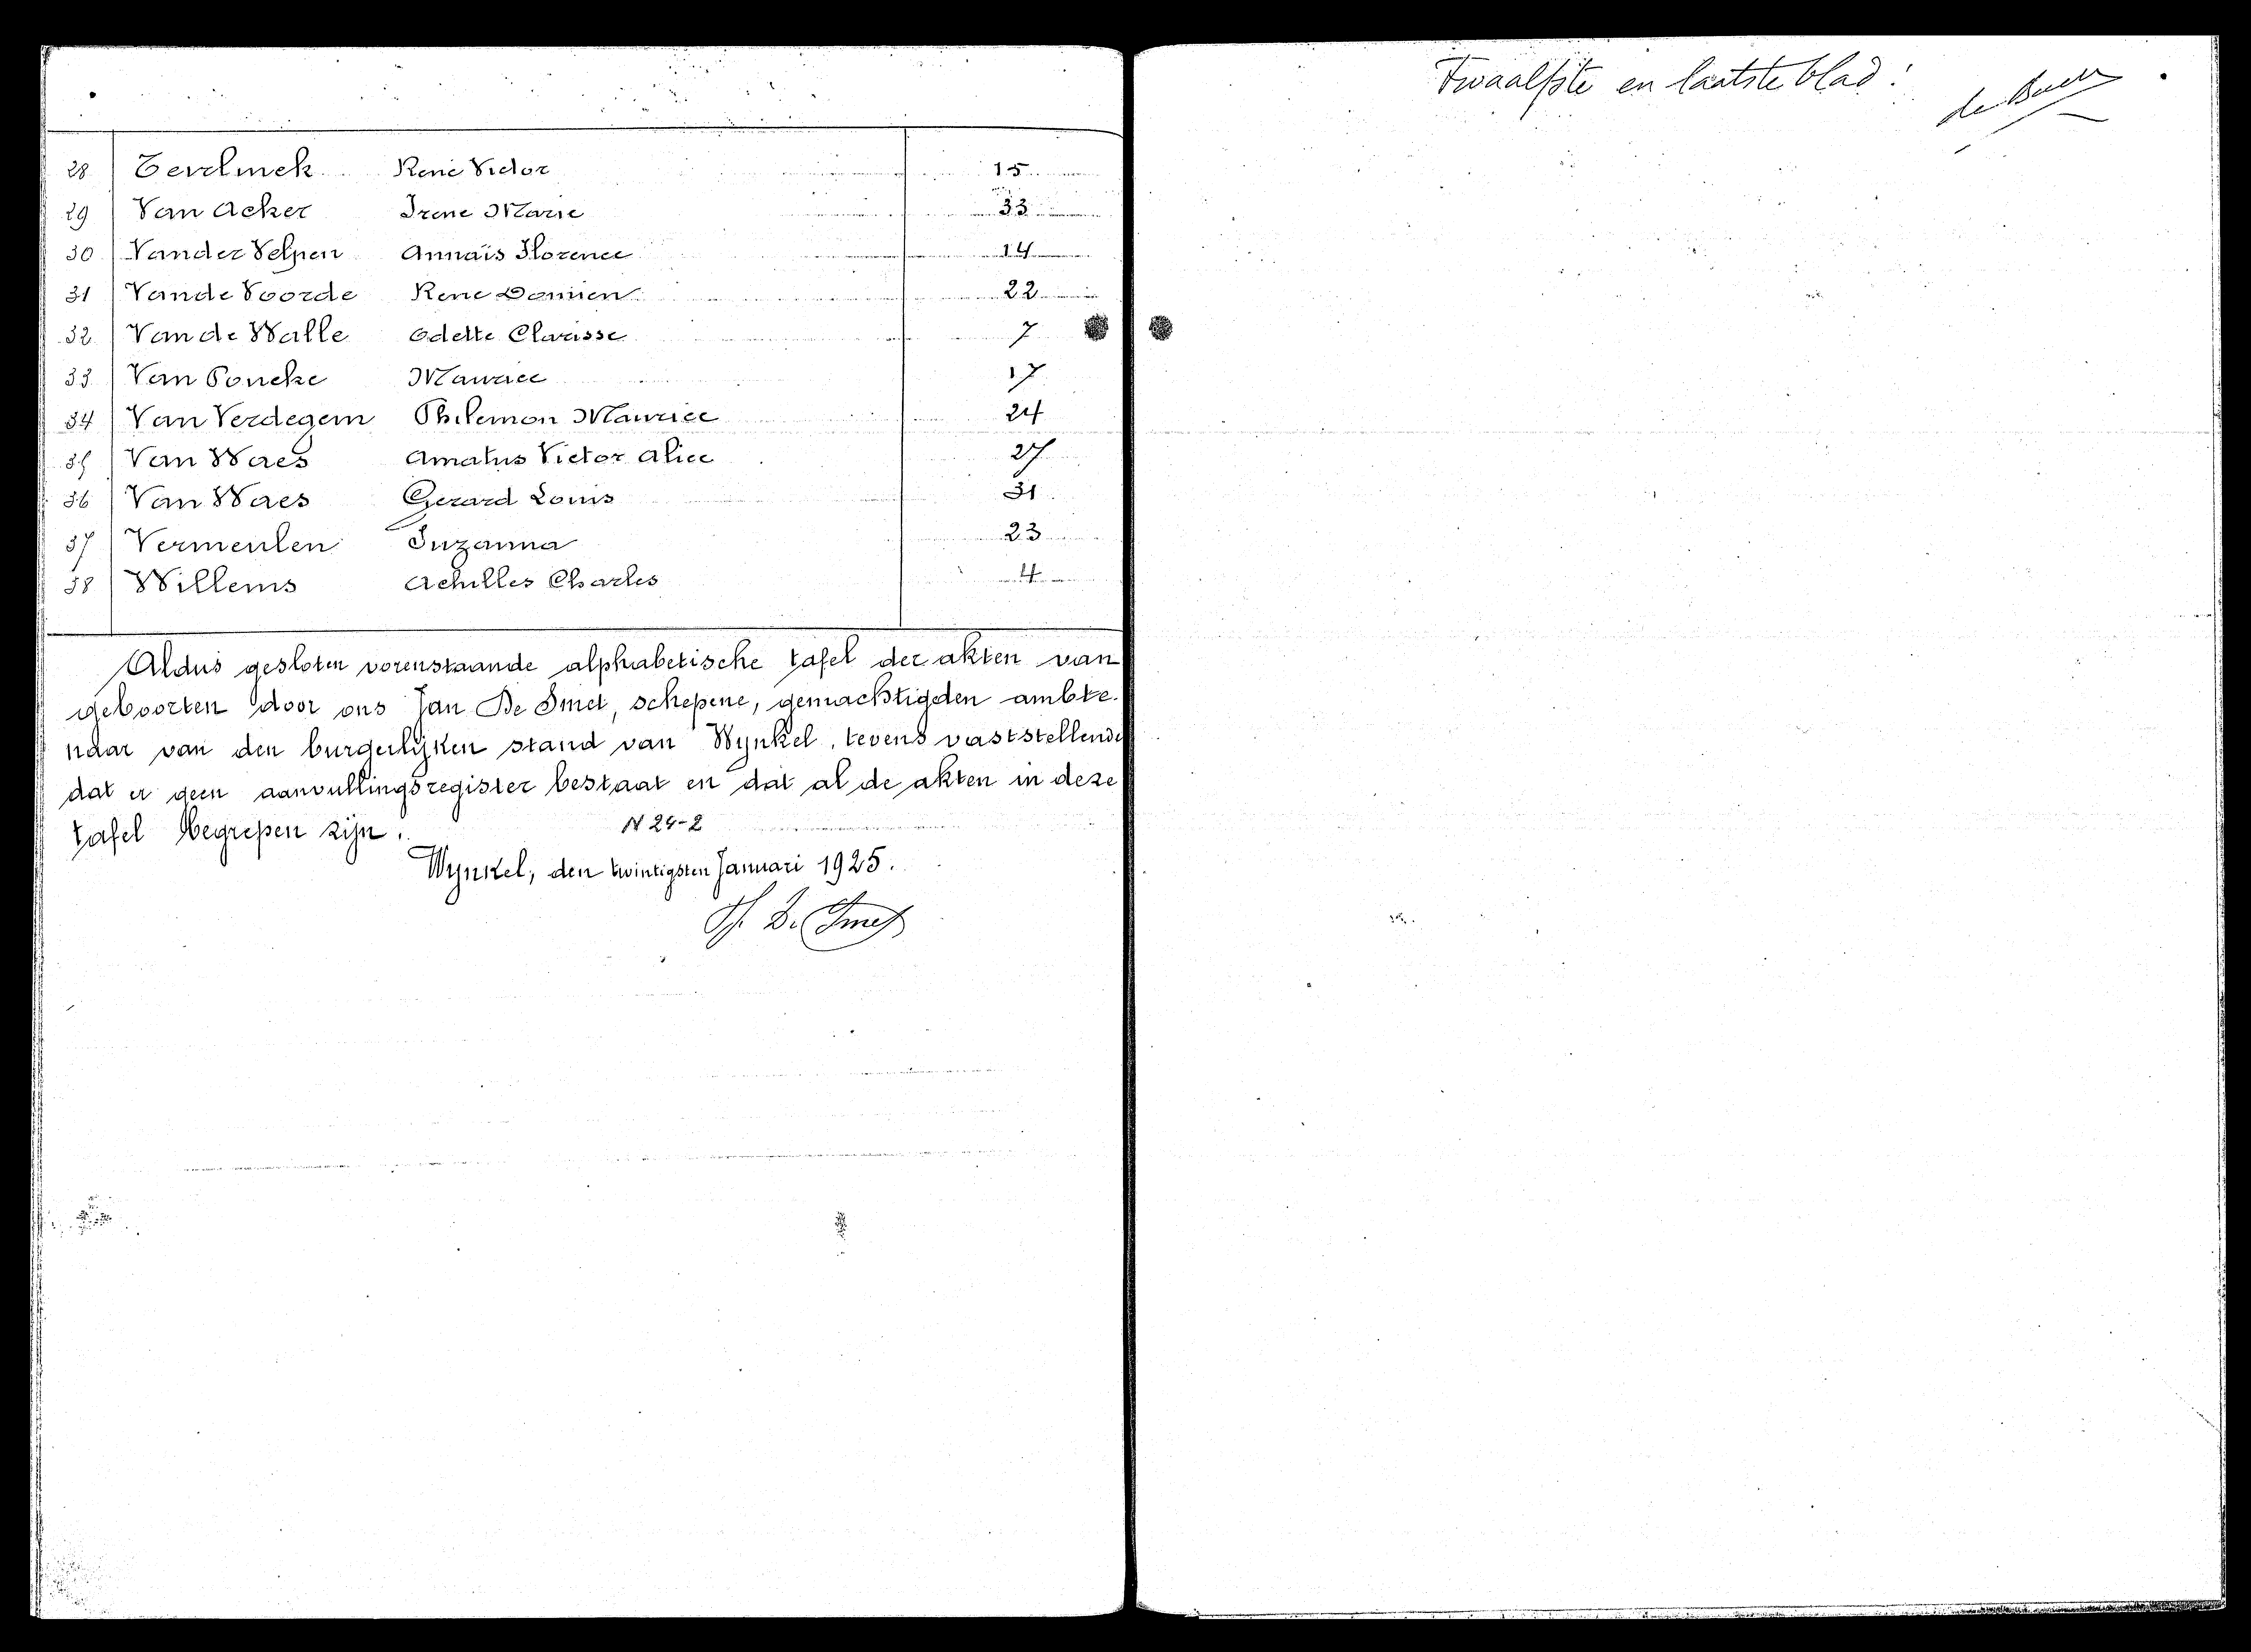 28 René Victor 15
29 Van Acker Irene Marie 33
30 Vander Velpen Annaïs Florence 14
31 Vande Voorde Rene Damien 22
32 Van de Walle Odette Clarisse 7
33 Van Poucke Maurice 17
34 Van Verdegem Philemon Maurice 24
35 Van Waes Amatus Victor Alice 27
36 Van Waes Gerard Louis 31
37 Vermeulen Suzanna 23
38 Willems Achilles Charles 4
Aldus gesloten vorenstaande alphabetische tafel der akten van
geboorten door ons Jan De Smet, schepene, gemachtigden ambte-
naar van den burgerlijken stand van Wynkel, tevens vaststellende
dat er geen aanvullingsregister bestaat en dat al de akten in deze
tafel begrepen zijn.
N 24-2
Wynkel, den twintigsten Januari 1925.
De Smet
Twaalfste en laatste blad: